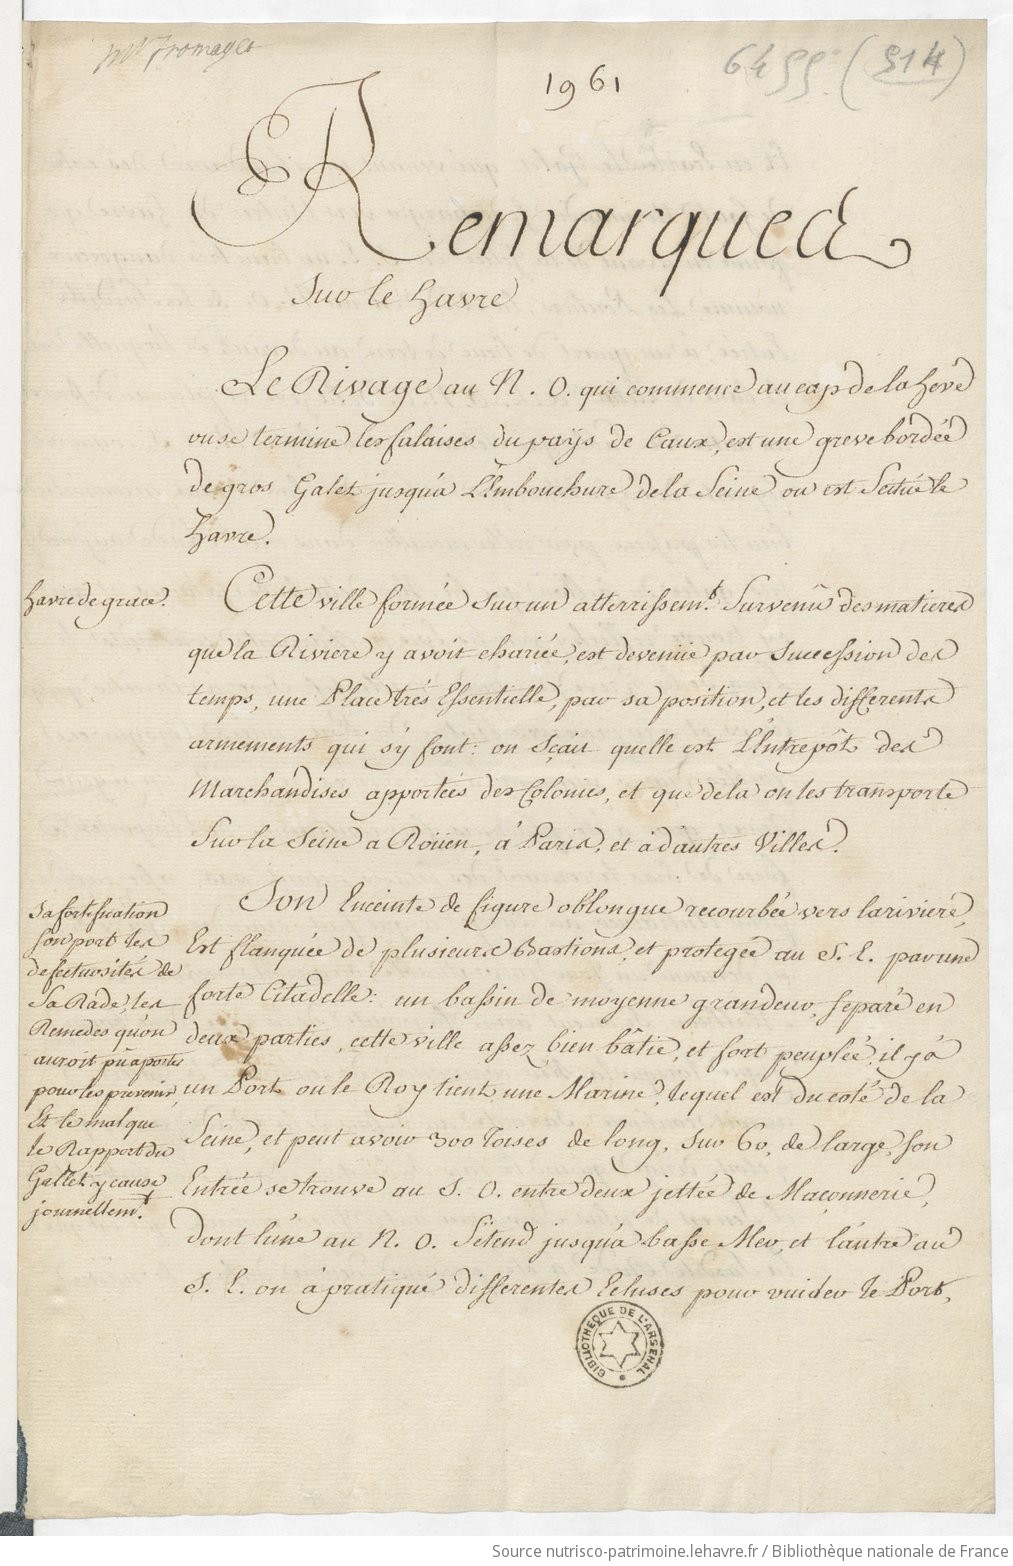 Mr fromages
1961
6499 (914)
Remarques
Sur le havre
Le Rivage au N. O. qui commence au cap de la heve
ou se termine les falaises du païs de Caux, est une greve bordée
de gros Galet jusqu'a L'Embouchure de la Seine ou est Scitué le
havre.
havre de grace.
Cette ville formée sur un atterrissemt. Survenû des matieres
que la Riviere y avoit chariée, est devenüe par Succession des
temps, une Place trés Essentielle, par sa position, et les differents
armements qui s'y font: on sçait quelle est L'Entrepôt des
Marchandises apportées des Colonies, et que de la on les transporte
Sur la Seine a Roüen, á Paris, et à d'autres Villes.
Sa fortification
son port les
defectuosités de
Sa Rade, les
Remedes qu'on
auroit pû aporter
pour les prevenir,
Et le mal que
le Rapport du
Gallet y cause
journellemt.
Son Enceinte de figure oblongue recourbée vers la riviere,
Est flanquée de plusieurs Bastions, et protegée au S. E. par une
forte Citadelle: un bassin de moyenne grandeur, separé en
deux parties, cette ville assez bien bâtie, et fort peuplée, il y à
un Port ou le Roy tient une Marine, lequel est du coté de la
Seine, et peut avoir 300 Toises de long, sur 60, de large, son
Entrée se trouve au S. O. entre deux jettée de Maçonnerie,
dont l'úne au N. O. S'étend jusqu'a basse Mer, et l'autre au
S. E. on à pratiqué differentes Ecluses pour vuider le Port,
BIBLIOTHEQUE DE L'ARSENAL
Source nutrisco-patrimoine.lehavre.fr / Bibliothèque nationale de France